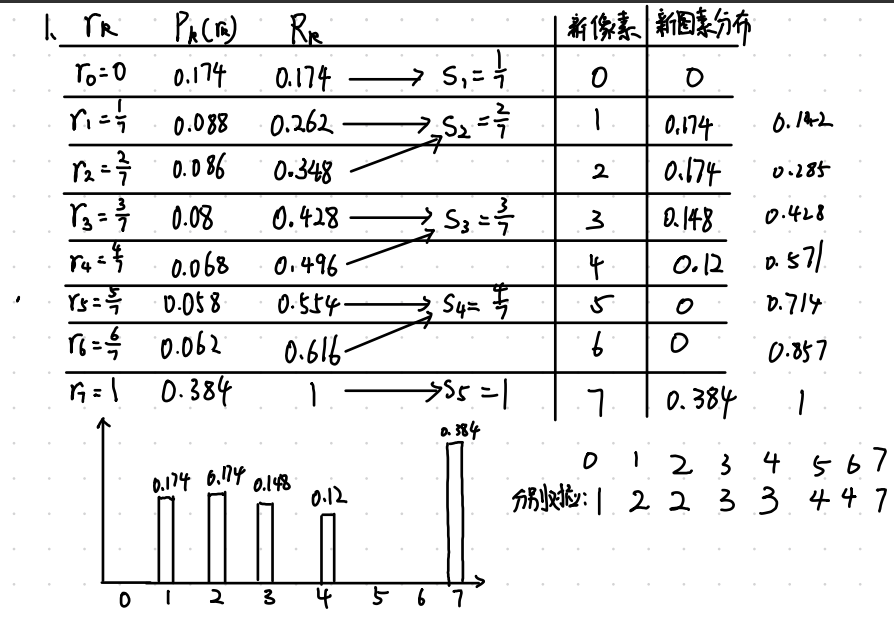 1. r_k P_k(r_k) R_k 新像素 新图素分布
r₀=0 0.174 0.174 → S₁=1/7 0 0
r₁=1/7 0.088 0.262 → S₂=2/7 1 0.174 0.142
r₂=2/7 0.086 0.348 2 0.174 0.285
r₃=3/7 0.08 0.428 → S₃=3/7 3 0.148 0.428
r₄=4/7 0.068 0.496 4 0.12 0.571
r₅=5/7 0.058 0.554 → S₄=4/7 5 0 0.714
r₆=6/7 0.062 0.616 6 0 0.857
r₇=1 0.384 1 → S₅=1 7 0.384 1
0.174 0.174 0.148 0.12 0.384
0 1 2 3 4 5 6 7
0 1 2 3 4 5 6 7
分别对应: 1 2 2 3 3 4 4 7